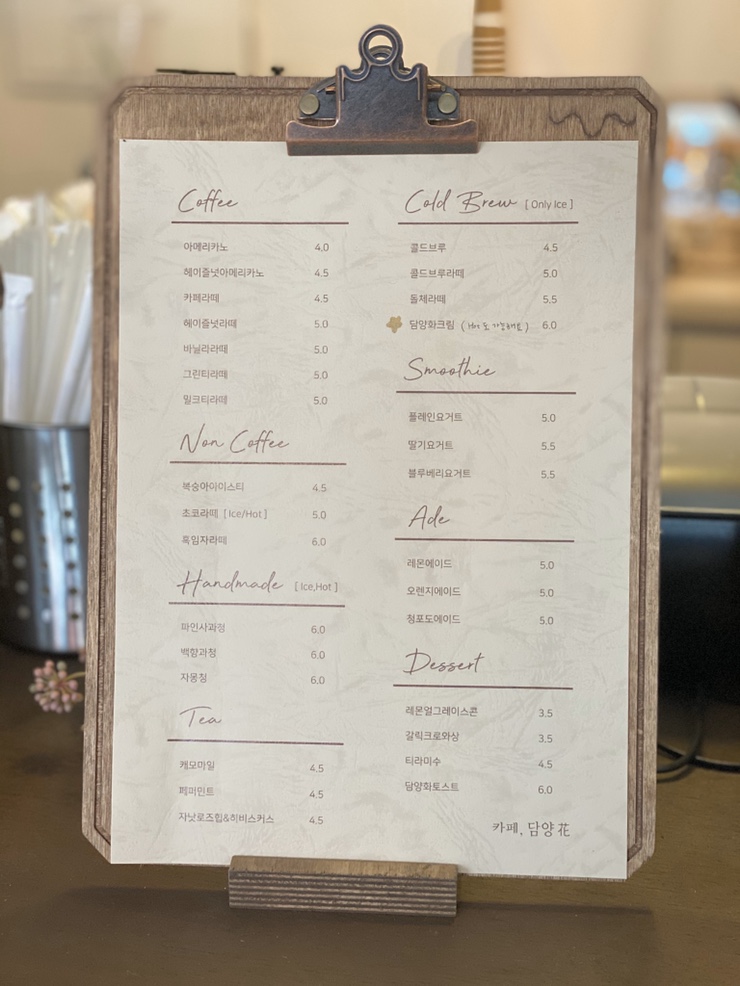 Coffee
아메리카노 4.0
헤이즐넛아메리카노 4.5
카페라떼 4.5
헤이즐넛라떼 5.0
바닐라라떼 5.0
그린티라떼 5.0
밀크티라떼 5.0
Non Coffee
복숭아아이스티 4.5
초코라떼 [ Ice/Hot ] 5.0
흑임자라떼 6.0
Handmade [ Ice,Hot ]
파인사과청 6.0
백향과청 6.0
자몽청 6.0
Tea
캐모마일 4.5
페퍼민트 4.5
자낫로즈힙&히비스커스 4.5
Cold Brew [ Only Ice ]
콜드브루 4.5
콜드브루라떼 5.0
돌체라떼 5.5
담양화크림 (Hot 도 가능해요) 6.0
Smoothie
플레인요거트 5.0
딸기요거트 5.5
블루베리요거트 5.5
Ade
레몬에이드 5.0
오렌지에이드 5.0
청포도에이드 5.0
Dessert
레몬얼그레이스콘 3.5
갈릭크로와상 3.5
티라미수 4.5
담양화토스트 6.0
카페, 담양 花